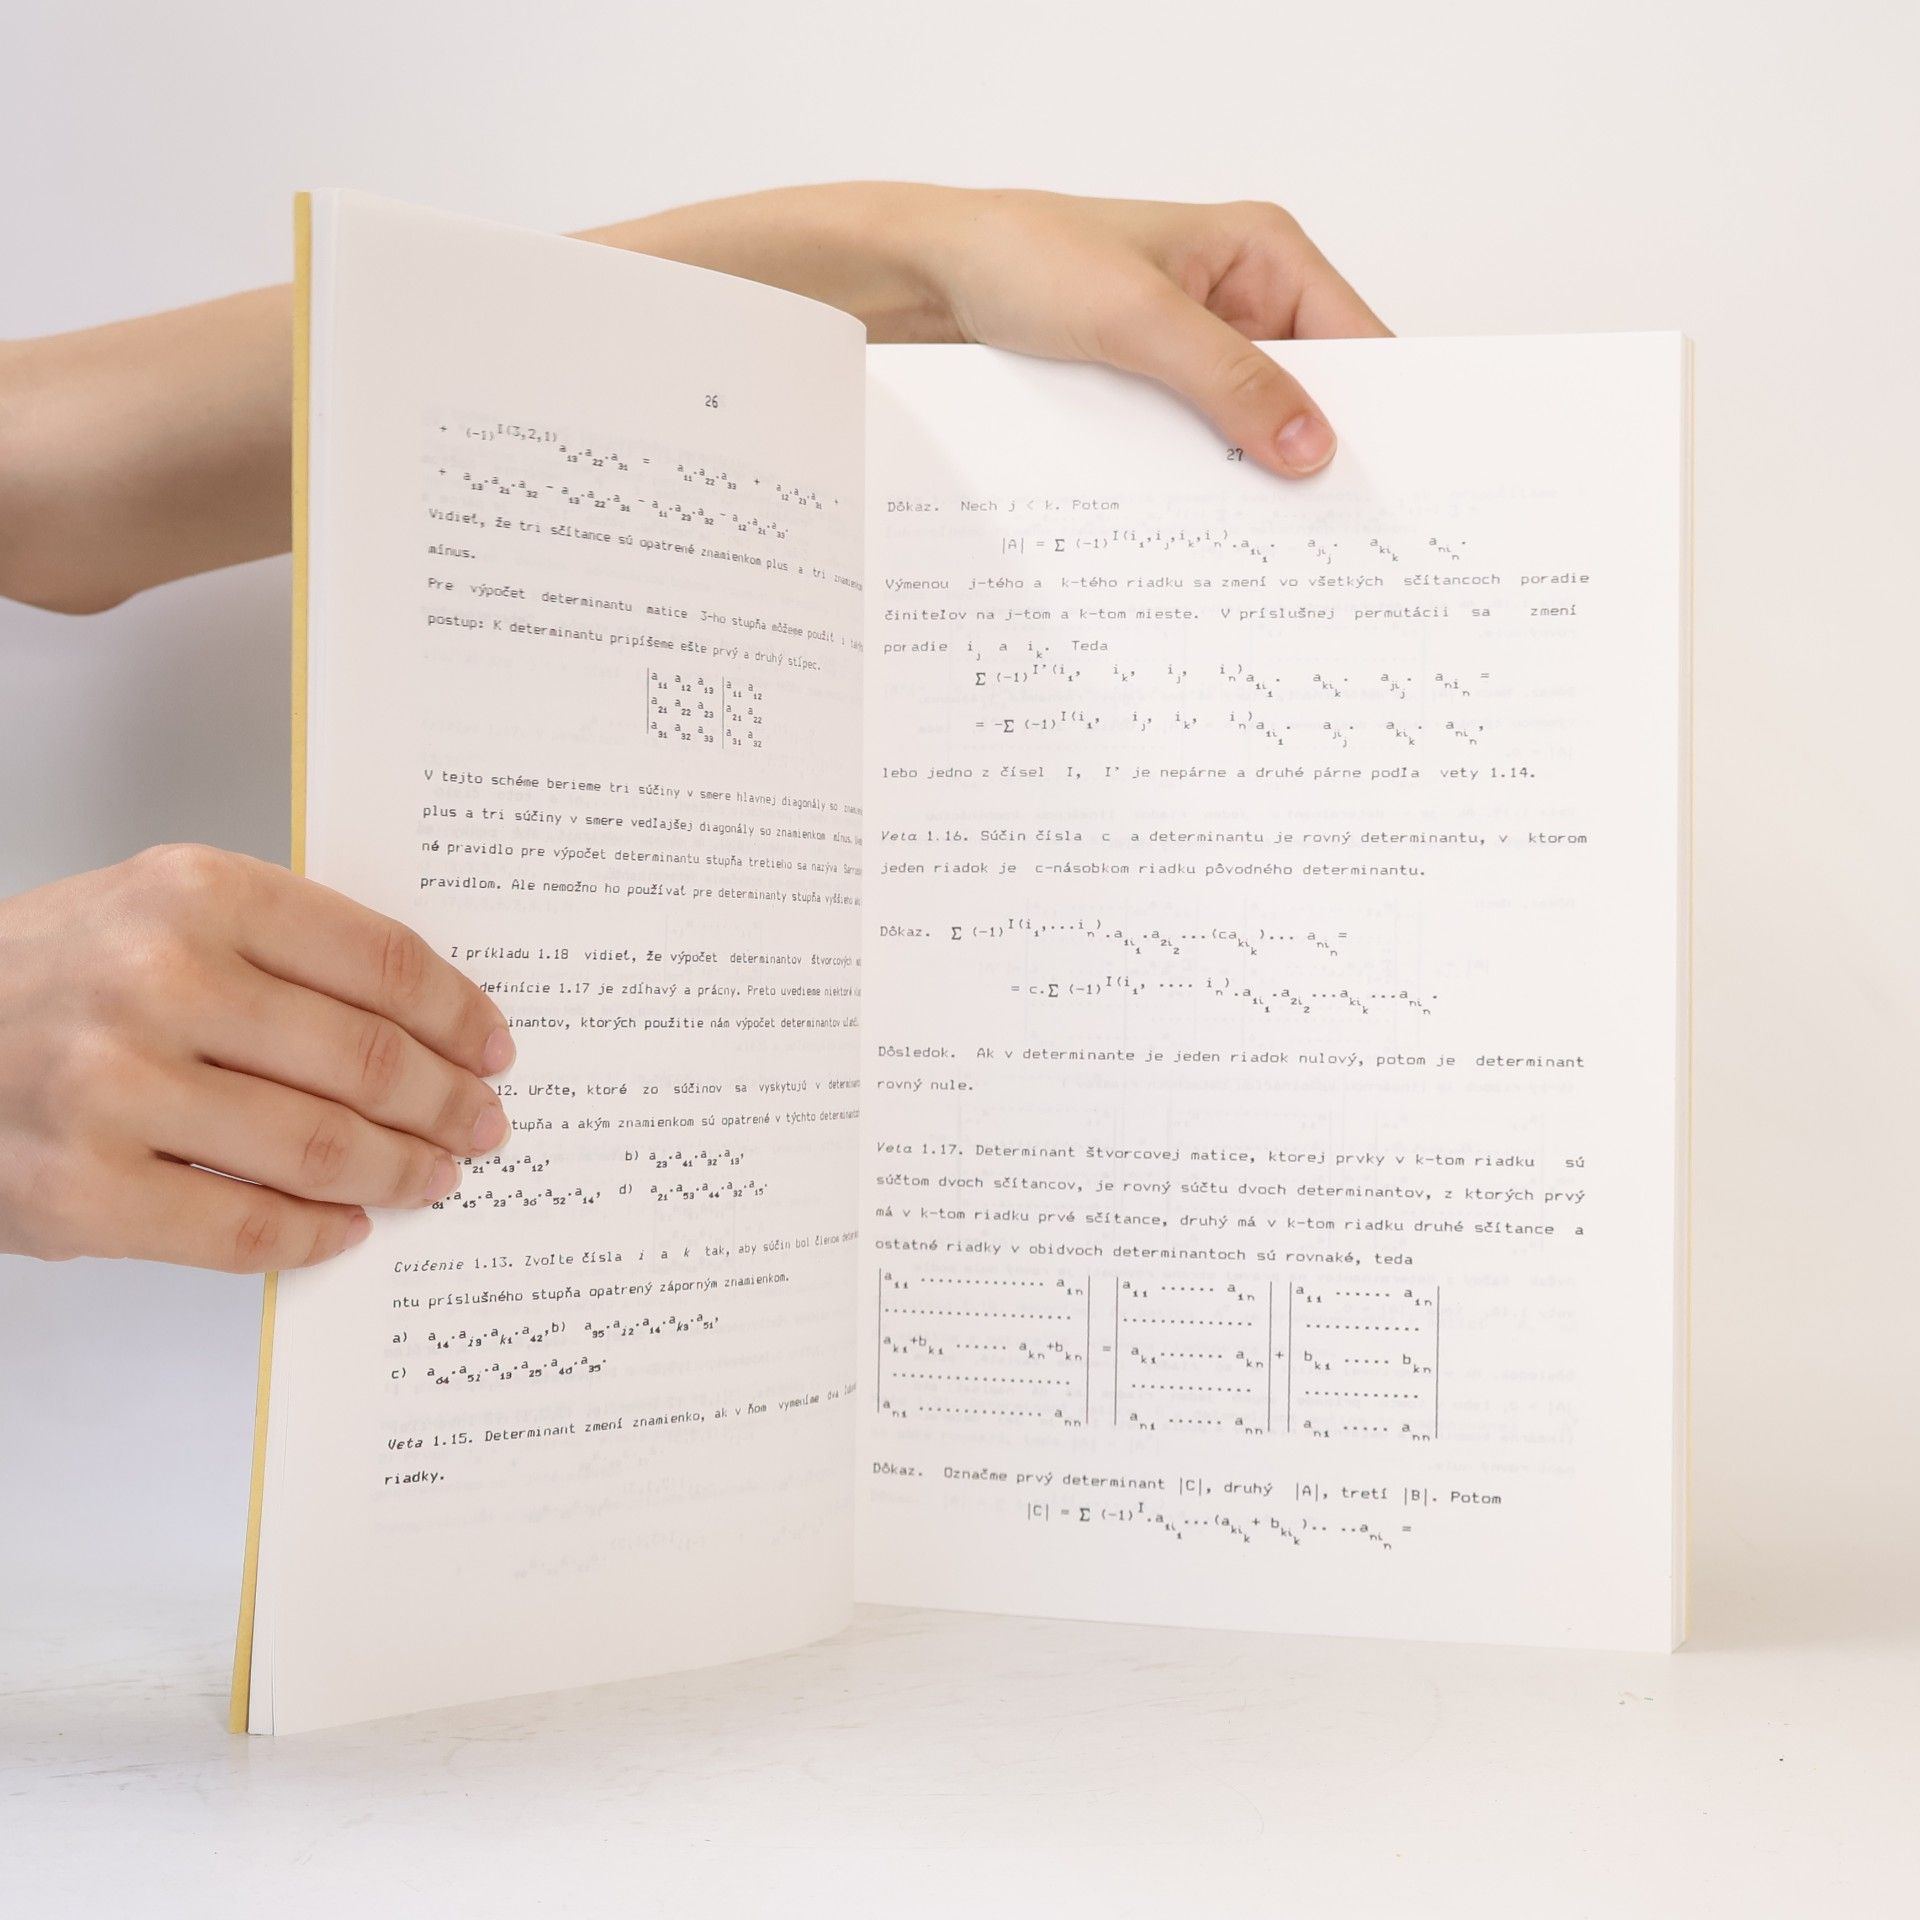 26
+ (-1)^I(3,2,1) a_13.a_22.a_31 = a_11.a_22.a_33 + a_12.a_23.a_31 +
+ a_13.a_21.a_32 - a_13.a_22.a_31 - a_11.a_23.a_32 - a_12.a_21.a_33.
Vidieť, že tri sčítance sú opatrené znamienkom plus a tri znamienkom
mínus.
Pre výpočet determinantu matice 3-ho stupňa môžeme použiť i
postup: K determinantu pripíšeme ešte prvý a druhý stĺpec.
|a_11 a_12 a_13|a_11 a_12
|a_21 a_22 a_23|a_21 a_22
|a_31 a_32 a_33|a_31 a_32
V tejto schéme berieme tri súčiny v smere hlavnej diagonály so
plus a tri súčiny v smere vedľajšej diagonály so znamienkom mínus.
né pravidlo pre výpočet determinantu stupňa tretieho sa nazýva
pravidlom. Ale nemožno ho používať pre determinanty stupňa vyššieho
Z príkladu 1.18 vidieť, že výpočet determinantov štvorcových
definície 1.17 je zdĺhavý a prácny. Preto uvedieme niektoré
inantov, ktorých použitie nám výpočet determinantov
12. Určte, ktoré zo súčinov sa vyskytujú v
tupňa a akým znamienkom sú opatrené v týchto
.a_21.a_43.a_12, b) a_23.a_41.a_32.a_13,
a_61.a_45.a_23.a_36.a_52.a_14, d) a_21.a_53.a_44.a_32.a_15.
Cvičenie 1.13. Zvoľte čísla i a k tak, aby súčin bol členom
ntu príslušného stupňa opatrený záporným znamienkom.
a) a_14.a_i3.a_k1.a_42, b) a_35.a_i2.a_14.a_k3.a_51,
c) a_64.a_5i.a_13.a_25.a_46.a_35.
Veta 1.15. Determinant zmení znamienko, ak v ňom vymeníme dva
riadky.
27
Dôkaz. Nech j < k. Potom
|A| = Σ (-1)^I(i_1,i_j,i_k,i_n).a_1i_1. a_ji_j. a_ki_k a_ni_n.
Výmenou j-tého a k-tého riadku sa zmení vo všetkých sčítancoch poradie
činiteľov na j-tom a k-tom mieste. V príslušnej permutácii sa zmení
poradie i_j a i_k. Teda
Σ (-1)^I'(i_1, i_k, i_j, i_n) a_1i_1. a_ki_k. a_ji_j. a_ni_n =
= -Σ (-1)^I(i_1, i_j, i_k, i_n) a_1i_1. a_ji_j. a_ki_k. a_ni_n,
lebo jedno z čísel I, I' je nepárne a druhé párne podľa vety 1.14.
Veta 1.16. Súčin čísla c a determinantu je rovný determinantu, v ktorom
jeden riadok je c-násobkom riadku pôvodného determinantu.
Dôkaz. Σ (-1)^I(i_1,...i_n).a_1i_1.a_2i_2...(ca_ki_k)... a_ni_n=
= c.Σ (-1)^I(i_1, .... i_n).a_1i_1.a_2i_2...a_ki_k...a_ni_n.
Dôsledok. Ak v determinante je jeden riadok nulový, potom je determinant
rovný nule.
Veta 1.17. Determinant štvorcovej matice, ktorej prvky v k-tom riadku sú
súčtom dvoch sčítancov, je rovný súčtu dvoch determinantov, z ktorých prvý
má v k-tom riadku prvé sčítance, druhý má v k-tom riadku druhé sčítance a
ostatné riadky v obidvoch determinantoch sú rovnaké, teda
|a_11 .............. a_1n| |a_11 ...... a_1n| |a_11 ...... a_1n|
|......................| |.............| |............|
|a_k1+b_k1 ...... a_kn+b_kn| = |a_k1....... a_kn| + |b_k1 ..... b_kn|
|.....................| |.............| |............|
|a_n1 .............. a_nn| |a_n1 ...... a_nn| |a_n1 ..... a_nn|
Dôkaz. Označme prvý determinant |C|, druhý |A|, tretí |B|. Potom
|C| = Σ (-1)^I.a_1i_1...(a_ki_k + b_ki_k).. ..a_ni_n =